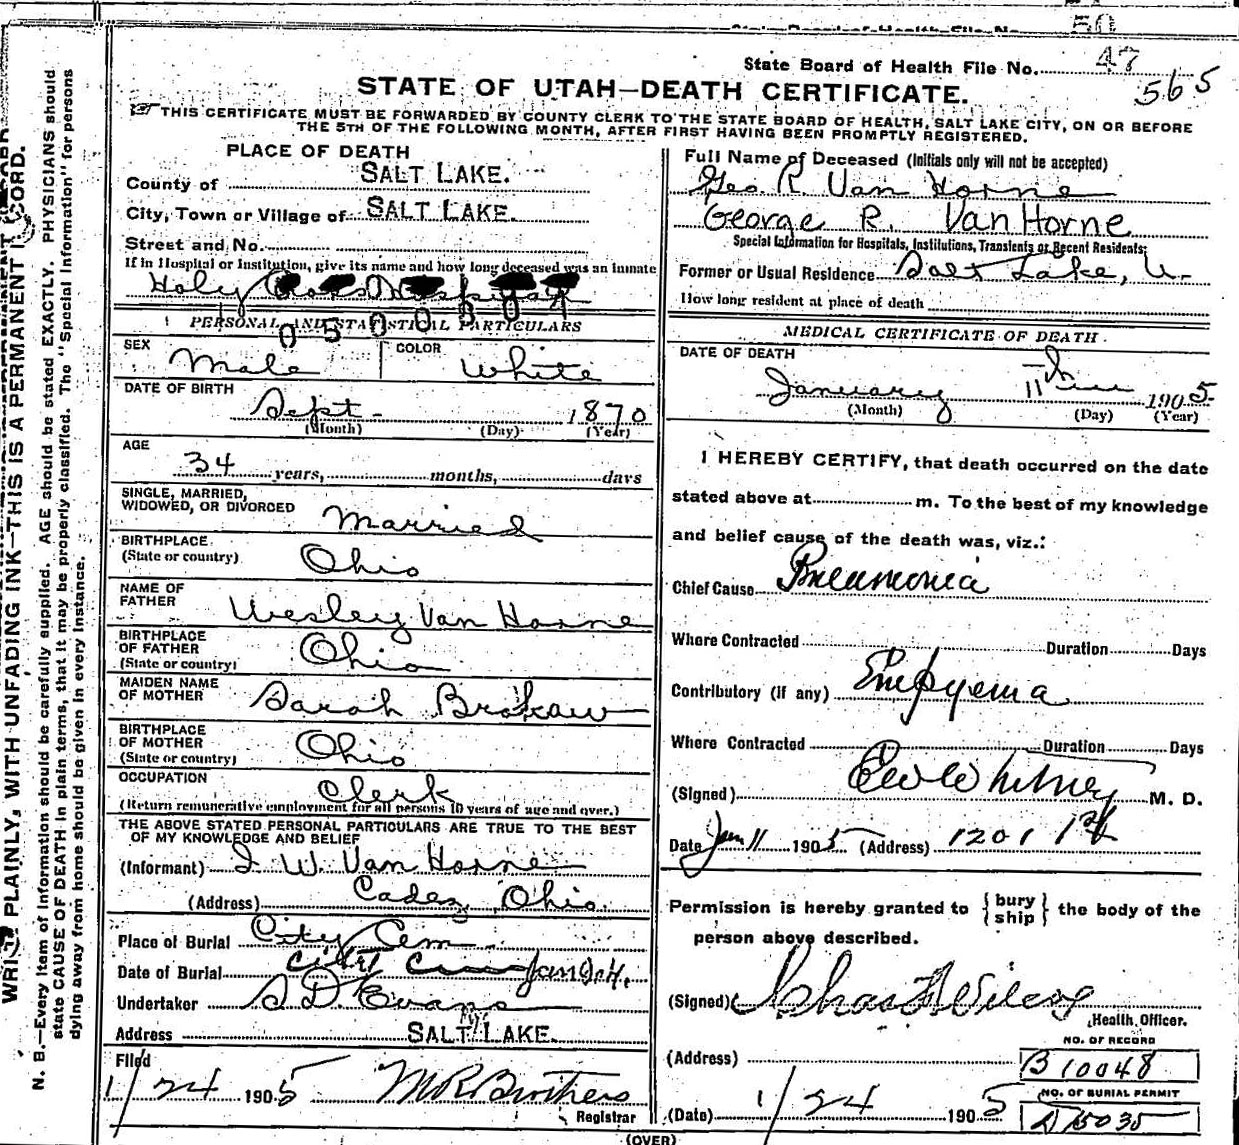 50
State Board of Health File No.
State Board of Health File No. 47
565
STATE OF UTAH—DEATH CERTIFICATE.
THIS CERTIFICATE MUST BE FORWARDED BY COUNTY CLERK TO THE STATE BOARD OF HEALTH, SALT LAKE CITY, ON OR BEFORE
THE 5TH OF THE FOLLOWING MONTH, AFTER FIRST HAVING BEEN PROMPTLY REGISTERED.
PLACE OF DEATH
County of SALT LAKE.
City, Town or Village of SALT LAKE.
Street and No.
If in Hospital or Institution, give its name and how long deceased was an inmate
Holy Cross Hospital
0500801
PERSONAL AND STATISTICAL PARTICULARS
SEX Male COLOR White
DATE OF BIRTH Sept 1870
(Month) (Day) (Year)
AGE
34 years, months, days
SINGLE, MARRIED,
WIDOWED, OR DIVORCED Married
BIRTHPLACE
(State or country) Ohio
NAME OF
FATHER Wesley Van Horne
BIRTHPLACE
OF FATHER
(State or country) Ohio
MAIDEN NAME
OF MOTHER Sarah Brokaw
BIRTHPLACE
OF MOTHER
(State or country) Ohio
OCCUPATION Clerk
(Return remunerative employment for all persons 10 years of age and over.)
THE ABOVE STATED PERSONAL PARTICULARS ARE TRUE TO THE BEST
OF MY KNOWLEDGE AND BELIEF
(Informant) I W. Van Horne
(Address) Cadez, Ohio.
Place of Burial City Cem
Date of Burial City Cem Jan 24.
Undertaker S. D. Evans
Address SALT LAKE.
Filed
1/24 1905 M R Brothers
Registrar
Full Name of Deceased (Initials only will not be accepted)
Geo R Van Horne
George R. Van Horne
Special Information for Hospitals, Institutions, Transients or Recent Residents;
Former or Usual Residence Salt Lake, U.
How long resident at place of death
MEDICAL CERTIFICATE OF DEATH.
DATE OF DEATH
January 11th 1905
(Month) (Day) (Year)
I HEREBY CERTIFY, that death occurred on the date
stated above at m. To the best of my knowledge
and belief cause of the death was, viz.:
Chief Cause Pneumonia
Where Contracted Duration Days
Contributory (if any) Empyema
Where Contracted Duration Days
(Signed) Ew Whitney M. D.
Date Jan 11 1905 (Address) 1201 1st
Permission is hereby granted to { bury ship } the body of the
person above described.
(Signed) Chas F Wilcox
Health Officer.
(Address)
NO. OF RECORD
B 10048
NO. OF BURIAL PERMIT
A 15035
(Date) 1/24 1905
(OVER)
WRITE PLAINLY, WITH UNFADING INK—THIS IS A PERMANENT RECORD.
N. B.—Every item of information should be carefully supplied. AGE should be stated EXACTLY. PHYSICIANS should
state CAUSE OF DEATH in plain terms, that it may be properly classified. The "Special Information" for persons
dying away from home should be given in every instance.